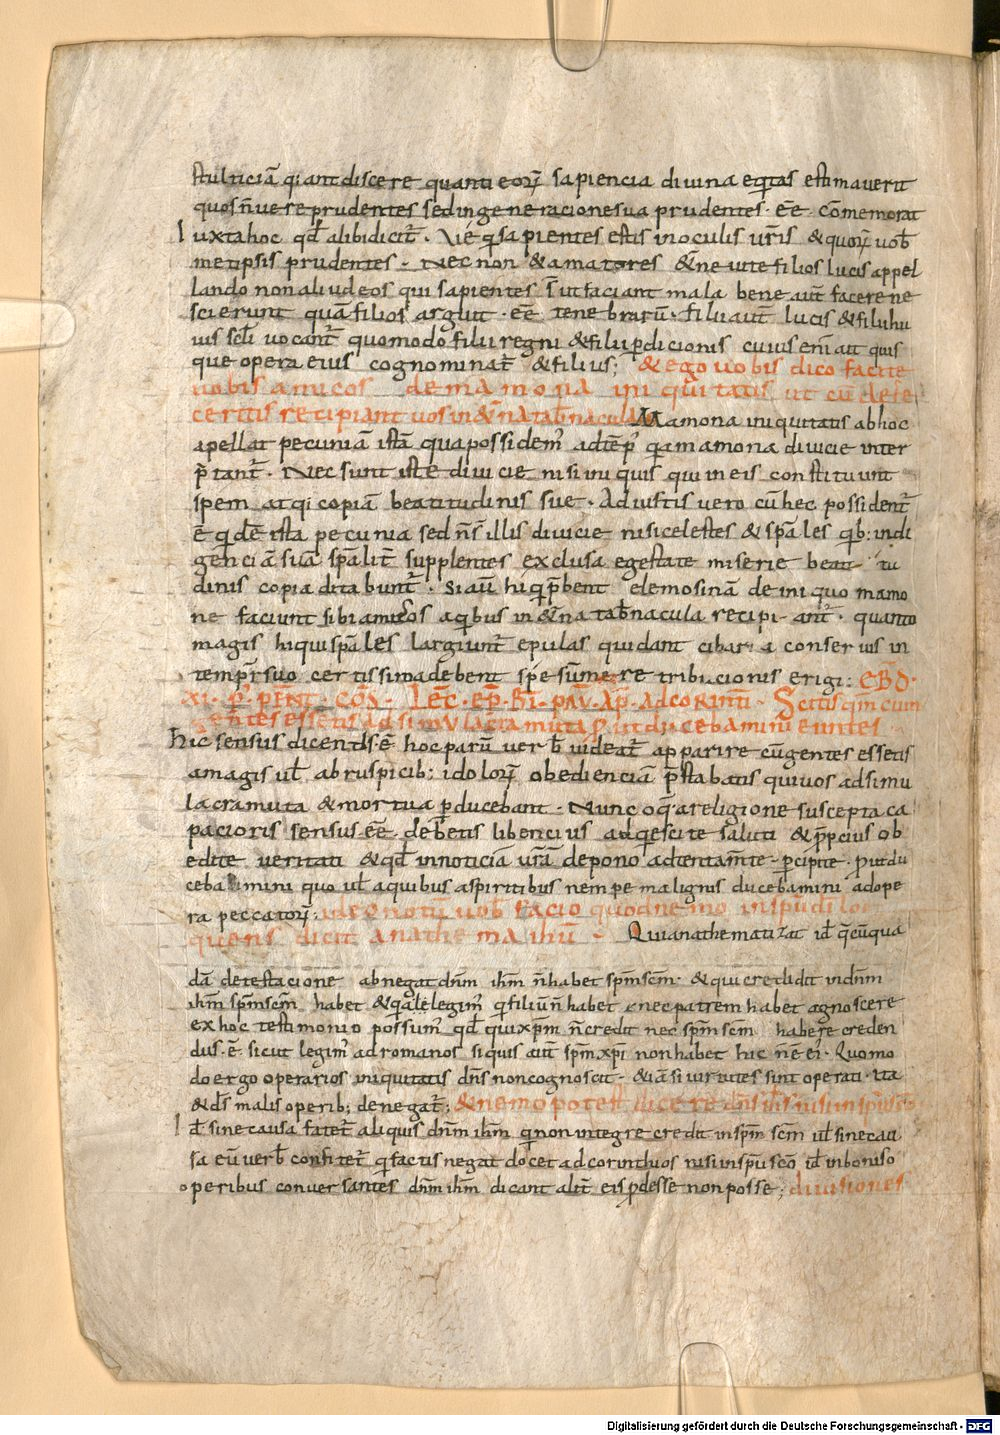 stulticiā qiant discere quanti eoꝝ sapiencia diuina eqitas estimauerit
quos n̄ uere prudentes sed in generacione sua prudentes · eē · cōmemorat
Iuxta hoc qđ alibi dicit̄ · Vę́ qi sapientes estis in oculis ur̄is & quoꝝ uob̄
metipsis prudentes · Nec non & amatores &ne uite filios lucis appel
lando non aliud eos qui sapientes s̄ ut faciant mala bene aut̄ facere ne
scierunt quā filios arguit · eē tenebrarū · filii aut̄ lucis & filii hu
ius scli uocant̄ quomodo filii regni & filii ꝑdicionis cuius eni͞ aut quis
que opera eius cognominat̄ & filius; & ego uobis dico facite
uobis amicos de mamona iniquitatis ut cū defe
ceritis recipiant uos in &n̄a tab̄nacula Mamona iniquitatis ab hoc
apellat pecuniā istā qua possidem᾽ ad tēp᾽ qa mamona diuicie inter
p̄tant̄ · Nec sunt iste diuicie nisi iniquis qui in eis constituunt
spem atqi copiā beatitudinis sue · Ad iustis uero cū hec possident̄
ē qidē ista pecunia sed ns̄ illis diuicie nisi celestes & sp̄ales qib; indi
genciā suā sp̄alit̄ supplentes exclusa egestate miserie beati tu
dinis copia ditabunt̄ · Si aū hi qi p̄bent elemosinā de iniquo mamo
ne faciunt sibi amicos a qibus in &n̄a tab̄nacula recipiant̄ · quanto
magis hi qui sp̄ales largiunt̄ epulas qui dant cibaria conseruis in
temp̄r suo certissima debent spe sumere tribucionis erigi : EBD̄ ·
XI · P᾽ · PEN̄T · COM̄ · LEC̄ · EP̄ · BĪ · PAV̄ · AP̄ · AD CORINTH̄ · Scitis qm̄ cum
gentes essetis ad simulacra muta prout ducebamini euntes
Hic sensus dicendi ·ē· hoc parū uerb̄ uideat̄ apparire cū gentes essetis
a magis ul̄ ab ruspicib; idoloꝝ obedienciā p̄stabatis qui uos ad simu
lacra muta & mortua ꝑducebant · Nunc qa religione suscepta ca
pacioris sensus · eē · debetis libencius adqiescite saluti & p̄pcius ob
edite ueritati & qđ in noticiā ur̄ā depono ad tentam̄te ꝑcipite · Prout du
cebamini quo ul̄ a quibus a spiritibus nempe malignis ducebamini ad ope
ra peccatoꝝ; ideo notū uob̄ facio quod nemo in spū dī lo
quens dicit anathema ih̄ū · Qui anathematizat id̄ qicūqua
dā detestacione abnegat dn̄m ih̄m n̄ habet spm̄ scm̄ · & qui credidit in dn̄m
ih̄m spm̄ scm̄ habet & qale legim᾽ qi filiū n̄ habet · nec patrem habet agnoscere
ex hoc testimonio possum᾽ qđ qui xp̄m n̄ credit nec spm̄ scm̄ habere creden
dus · ē · sicut legim᾽ ad romanos si quis aut̄ spm̄ xp̄i non habet hic n̄ ē ei᾽ · Quomo
do ergo operarios iniquitatis dn̄s non cognoscit · & iā si uirtutes sint operati · Ita
& ds̄ malis operib; denegat̄; & nemo potest dicere dn̄s ih̄s nisi in spū scō
Id̄ sine causa fatet̄ aliquis dn̄m ih̄m qi non integre credit in spm̄ scm̄ ul̄ sine cau
sa eū uerb̄ confitet̄ qi factis negat docet ad corinthios nisi in spū scō id̄ in bonis o
operibus conuersantes dn̄m ih̄m dicant alit̄ eis ꝓdesse non posse; diuisiones
Digitalisierung gefördert durch die Deutsche Forschungsgemeinschaft - DFG